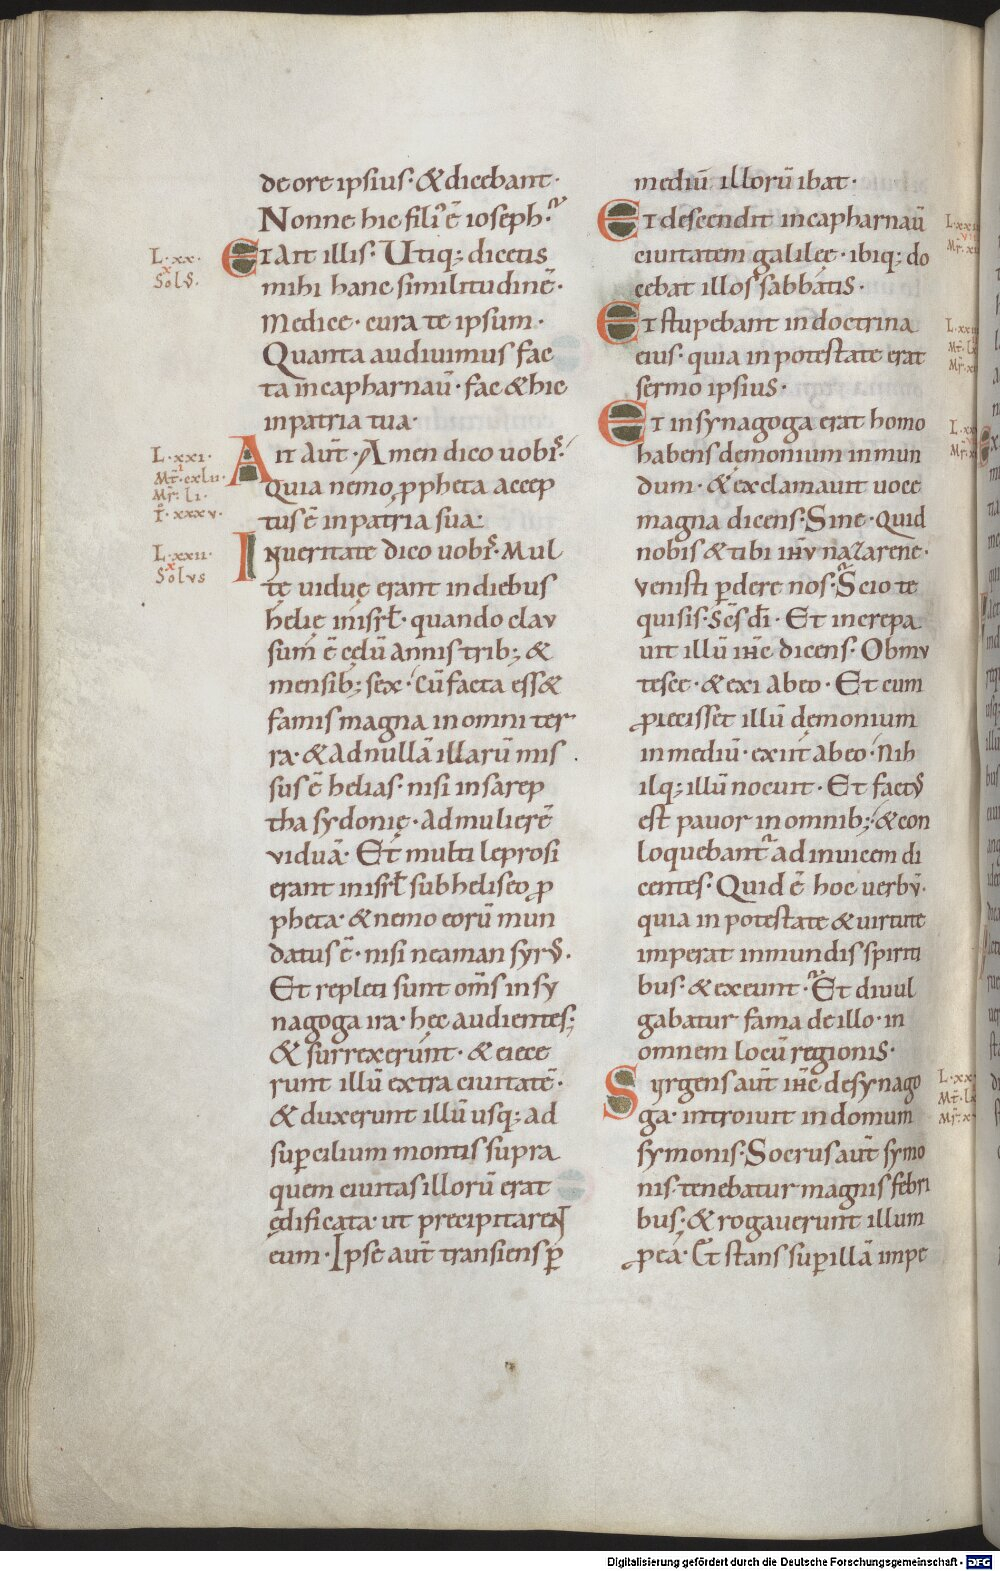 de ore ipsius · & dicebant ·
Nonne hic fili᾽ ē ioseph·
L · xx ·
Et ait illis · Utiq; dicetis
x
Solꝰ.
mihi hanc similitudinē ·
Medice · cura te ipsum ·
Quanta audiuimus fac
ta in capharnaū · fac & hic
in patria tua ·
L · xxi ·
Ait aut̄ · Amen dico uobis ·
Mt̄ · cxlii ·
Mr̄ · li ·
Quia nemo ꝓpheta accep
I̊ · xxxv ·
tus ē in patria sua ·
L · xxii ·
In ueritate dico uobis · Mul
x
Solus
tę uiduę erant in diebus
helię in isrł · quando clau
sum ē cęlū annis trib; &
mensib; sex · Cū facta ess&
famis magna in omni ter
ra · & ad nullā illarū mis
sus ē helias · nisi in sarep
tha sydonię · ad mulierē
viduā · Et multi leprosi
erant in isrł sub heliseo ꝓ
pheta · & nemo eorū mun
datus ē · nisi neaman syrꝰ ·
Et repleti sunt om̄s in sy
nagoga ira · hęc audientes;
& surrexerunt · & eiece
runt illū extra ciuitatē ·
& duxerunt illū usq; ad
suꝑcilium montis supra
quem ciuitas illorū erat
ędificata · ut pręcipitareN
eum · Ipse aut̄ transiens ꝑ
mediū illorū ibat ·
Et descendit in capharnaū
ciuitatem galileę · ibiq; do
cebat illos sabbatis ·
Et stupebant in doctrina
eius · quia in potestate erat
sermo ipsius ·
Et in synagoga erat homo
habens dęmonium inmun
dum · & exclamauit uoce
magna dicens · Sine · quid
nobis & tibi ih̄u nazarene ·
venisti ꝑdere nos · Scio te
quis is · sc̄s dī · Et increpa
uit illū ih̄c dicens · Obmu
tesce · & exi ab eo · Et cum
ꝓiecisset illū dęmonium
in mediū · exiit ab eo · Nih
ilq; illū nocuit · Et factꝰ
est pauor in omnib; · & con
loquebant᷑ ad inuicem di
centes · Quid ē hoc uerbū ·
quia in potestate & uirtute
imperat inmundis spiriti
bus · & exeunt · Et diuul
gabatur fama de illo · in
omnem locū regionis ·
Surgens aut̄ ih̄c de synago
ga · introiuit in domum
symonis · Socrus aut̄ symo
nis · tenebatur magnis febri
bus · & rogauerunt illum
ꝓ ea · Et stans suꝑ illā impe
Digitalisierung gefördert durch die Deutsche Forschungsgemeinschaft · DFG